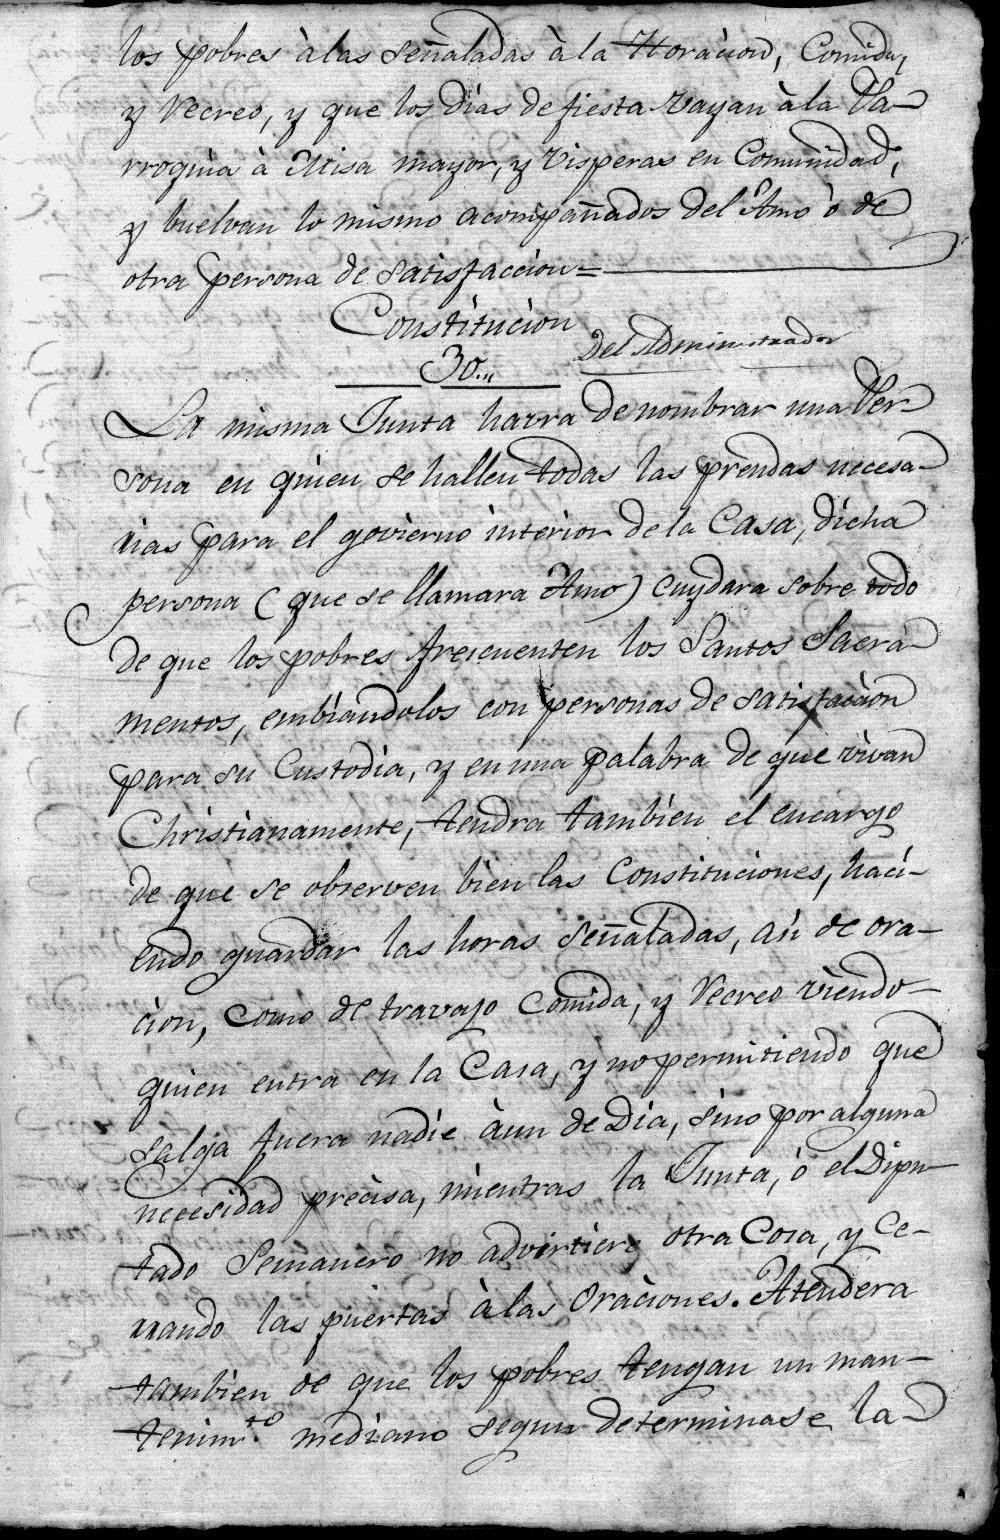 los pobres à las señaladas à la Horàcion, Comida,
y Recreo, y que los dias de fiesta vayan à la Pa-
rroquia à Misa mayor, y Visperas en Comunidad,
y buelvan lo mismo acompañados del Amo ò de
otra persona de satisfaccion=
Constitucion
30..
Del Administrador
La misma Junta havra de nombrar una Per-
sona en quien se hallen todas las prendas necesa-
rias para el govierno interior de la Casa, dicha
persona (que se llamara Amo) cuydara sobre todo
de que los pobres frequenten los Santos Sacra-
mentos, embiandolos con personas de satisfacion
para su Custodia, y en una palabra de que vivan
Christianamente, tendra tambien el encargo
de que se observen bien las Constituciones, haci-
endo guardar las horas señaladas, asi de ora-
cion, como de travajo Comida, y Recreo viendo
quien entra en la Casa, y no permitiendo que
salga fuera nadie àun de Dia, sino por alguna
necesidad precisa, mientras la Junta, ò el Dipu-
tado Semanero no advirtiere otra Cosa, y Ce-
rrando las puertas à las Oràciones. Atendera
tambien de que los pobres tengan un man-
tenim.to mediano segun determinase la